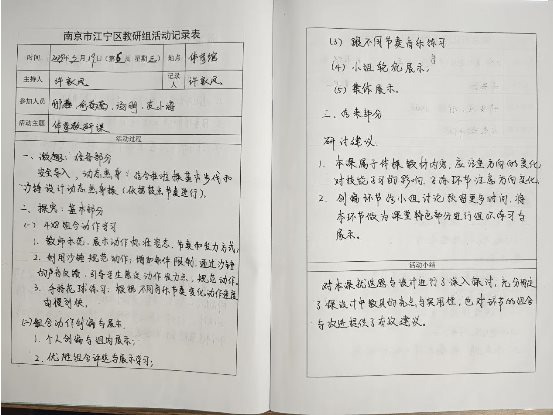 南京市江宁区教研组活动记录表
时间 2025年2月19日(第 周 星期三) 地点 体育馆
主持人 许家凤 记录人 许家凤
参加人员
活动主题 体育教研课
活动过程
一、激趣:准备部分
安全导入,动态热身:结合啦啦操基本步伐和
沙锤设计动态热身操(依据鼓点节奏进行)。
二、探究:基本部分
(一)组合动作学习
1. 教师示范:展示动作,节奏和发力方式;
2. 利用沙锤规范动作:增加条件限制,通过沙锤
响声反馈,引导学生感受动作发力点,规范动作。
3. 手持花球练习:根据不同音乐节奏变化动作速度
由慢到快。
(二)组合动作创编与展示
1. 个人创编与组内展示;
2. 优胜组合评选与展示学习;
(3) 跟不同节奏音乐练习
(4) 小组轮流展示;
(5) 集体展示。
三、结束部分
研讨建议
1. 本课属于体操教材内容,应注重方向的变化
对技能学习的影响,各练环节注意方向变化。
2. 创编环节的小组讨论放置更多时间,将
本环节做为课堂特色部分进行组织学习与
展示。
活动小结
对本课就选题与设计进行了深入探讨,充分肯定
了课设计中教具的亮点与实用性,也对环节的组合
与改进提供了有效建议。